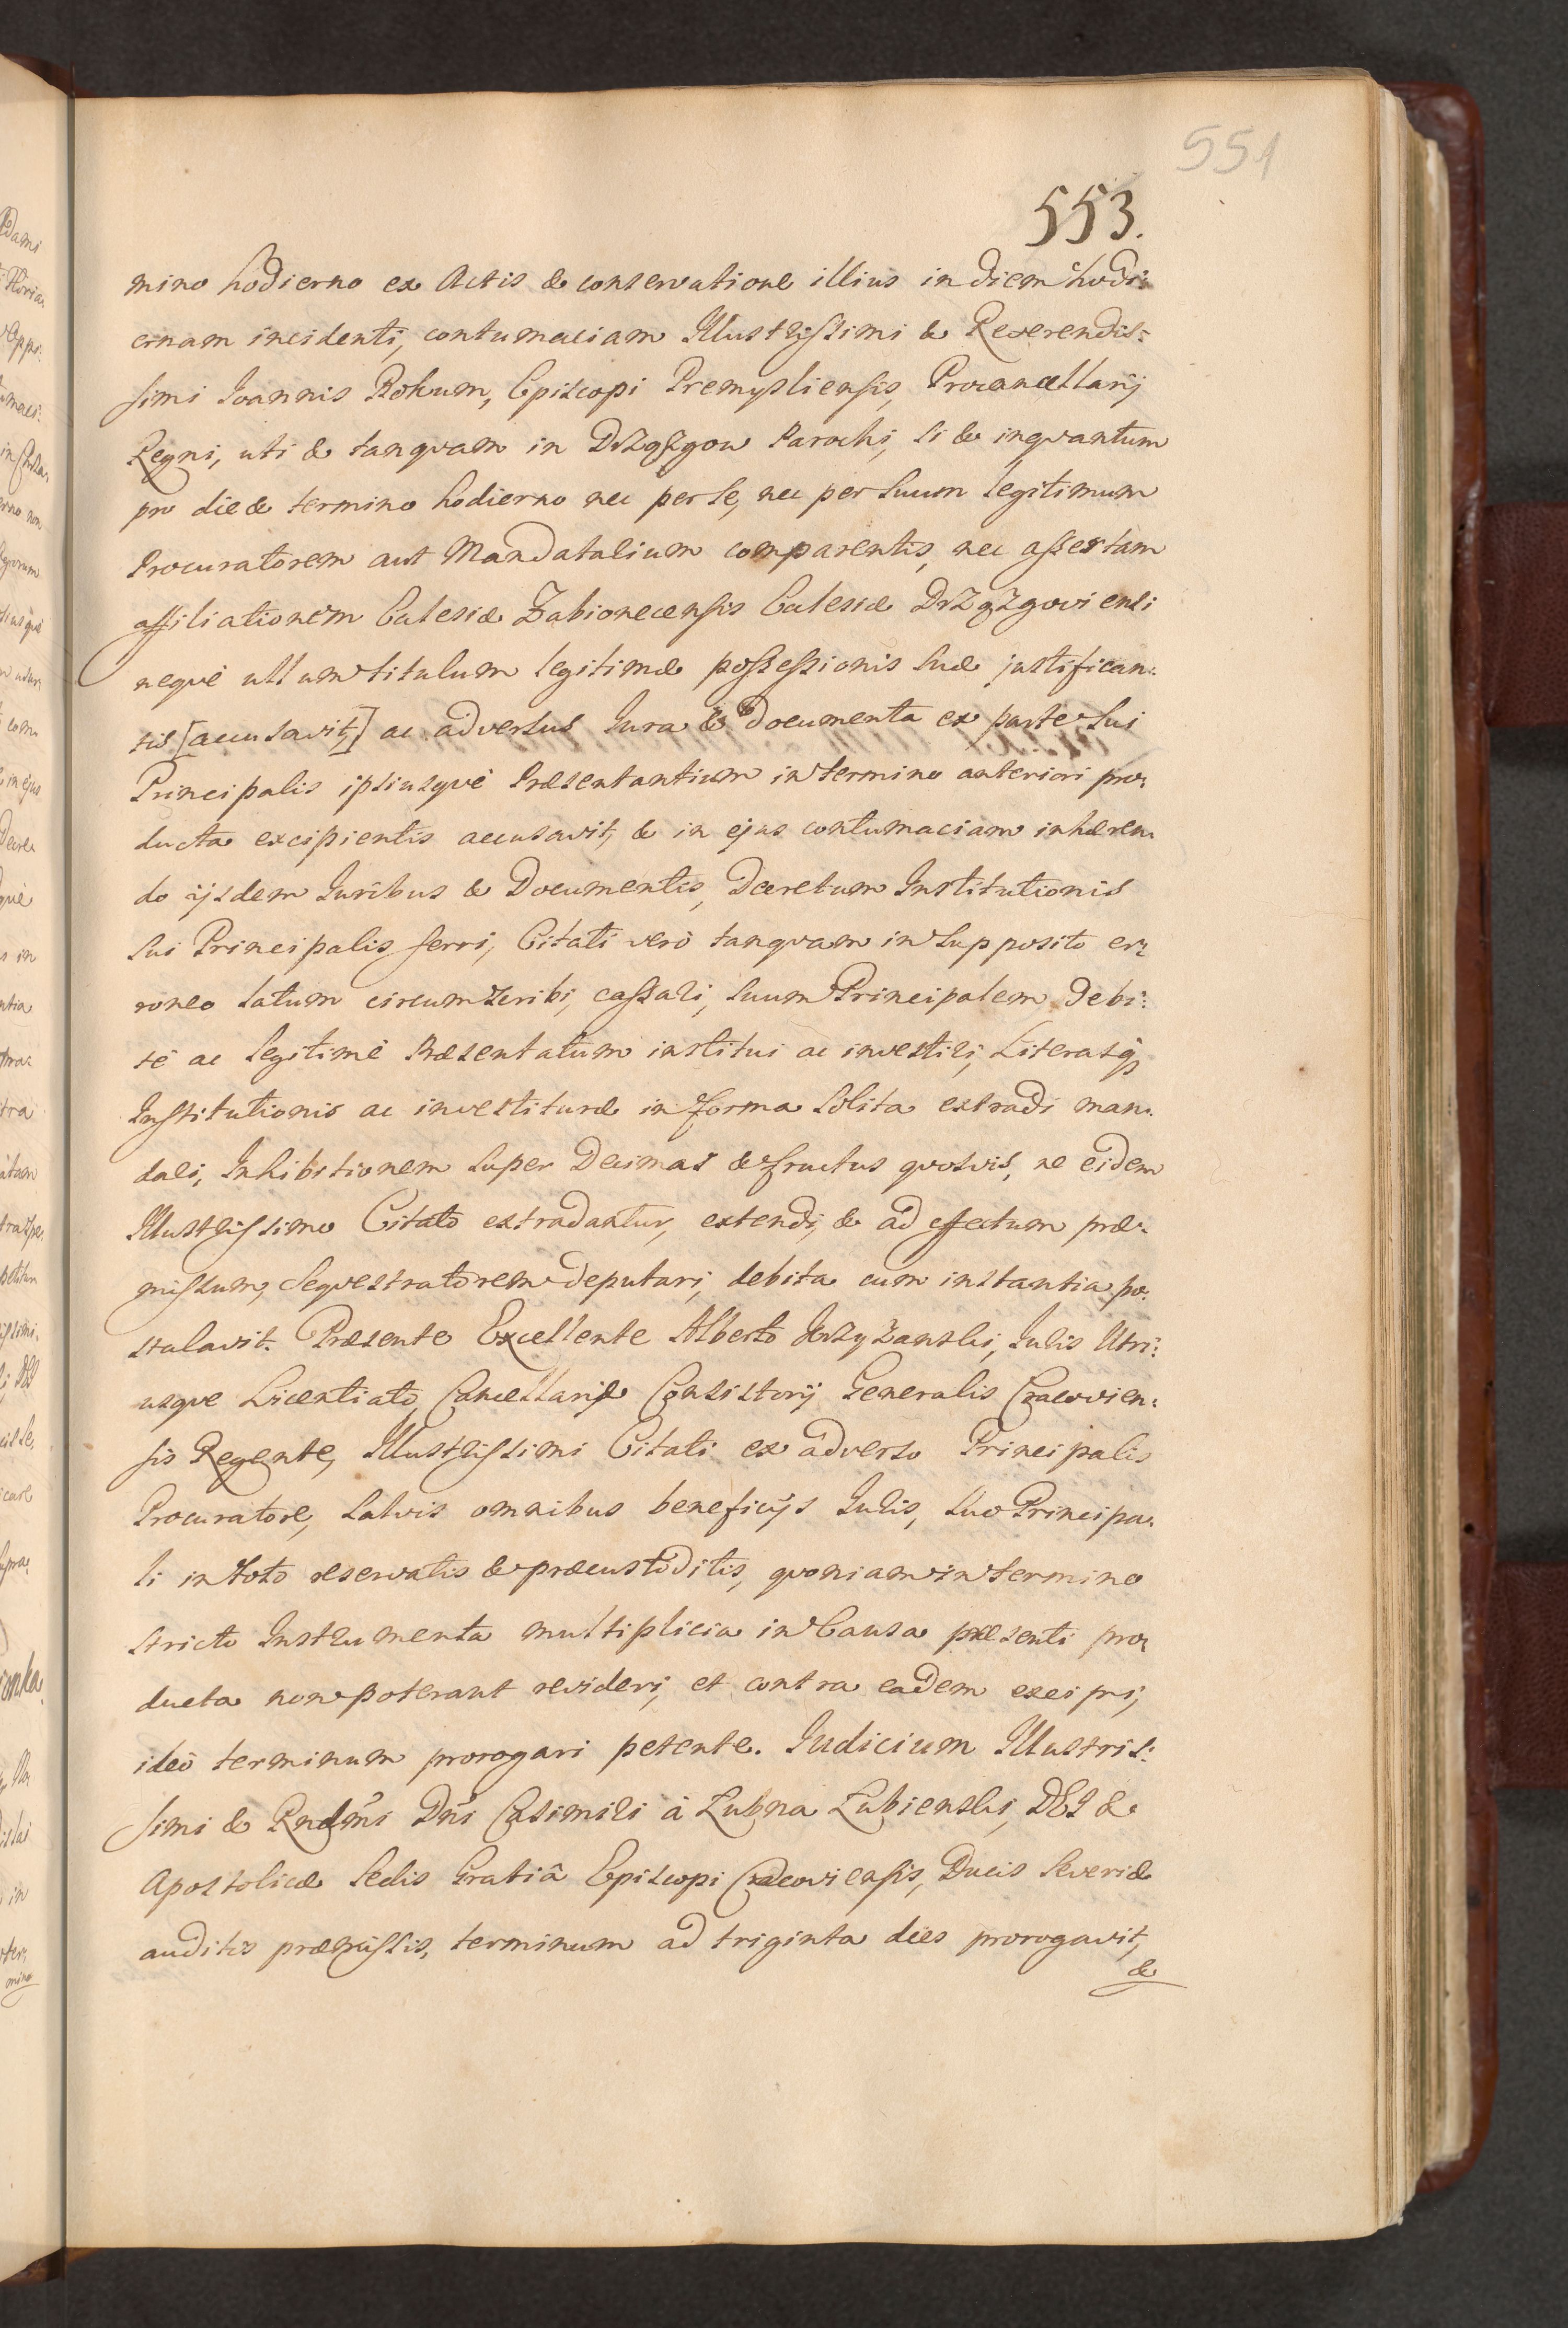 551
553.
mino hodierno ex Actis & conservatione illius in diem hodi:
ernam incidenti, contumaciam Illustrissimi & Reverendis:
simi Joannis Bokum, Episcopi Premysliensis, Procancellarij
Regni, uti & tanqvam in Drzązgow Parochi, si & inqvantum
pro die & termino hodierno nec per se, nec per suum legitimum
Procuratorem aut Mandatalium comparentis, nec assertam
affiliationem Ecclesiæ Zabionecensis Ecclesiæ Drzązgoviensi
neqvè ullum titulum legitimæ possessionis suæ justifican:
tis [accusavit,] ac adversus Jura & Documenta ex parte sui
Principalis ipsiusqvè Præsentantium in termino anteriori pro:
ducta excipientis accusavit, & in ejus contumaciam inhæren:
do ijsdem Juribus & Documentis, Decretum Institutionis
sui Principalis ferri, Citati verò tanqvam in supposito er:
roneo latum circumscribi, cassari, suum Principalem debi:
tè ac legitimè Præsentatum institui ac investiri, Literasq̃
Institutionis ac investituræ in forma solita extradi man:
dari, Inhibitionem super Decimas & fructus qvosvis, ne eidem
Illustrissimo Citato extradantur, extendi, & ad effectum præ:
missum, Seqvestratorem deputari, debita cum instantia po:
stulavit. Præsente Excellente Alberto Jerzyzanski, Juris Utri:
usqve Licentiato, Cancellariæ Consistorij Generalis Cracovien:
sis Regente, Illustrissimi Citati ex adverso Principalis
Procuratore, salvis omnibus beneficijs Juris, suo Principa:
li in toto reservatis & præcustoditis, qvoniam in termino
stricto Instrumenta multiplicia in Causa præsenti pro:
ducta non poterant revideri, et contra eadem excipi,
ideò terminum prorogari petente. Judicium Illustris:
simi & Rndmi Dni Casimiri à Łubna Łubienski, DEI &
Apostolicæ Sedis Gratiâ Episcopi Cracoviensis, Ducis Severiæ
auditis præmissis, terminum ad triginta dies prorogavit,
&